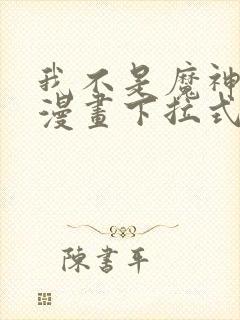 我不是魔神
漫畫下拉式
陳書平